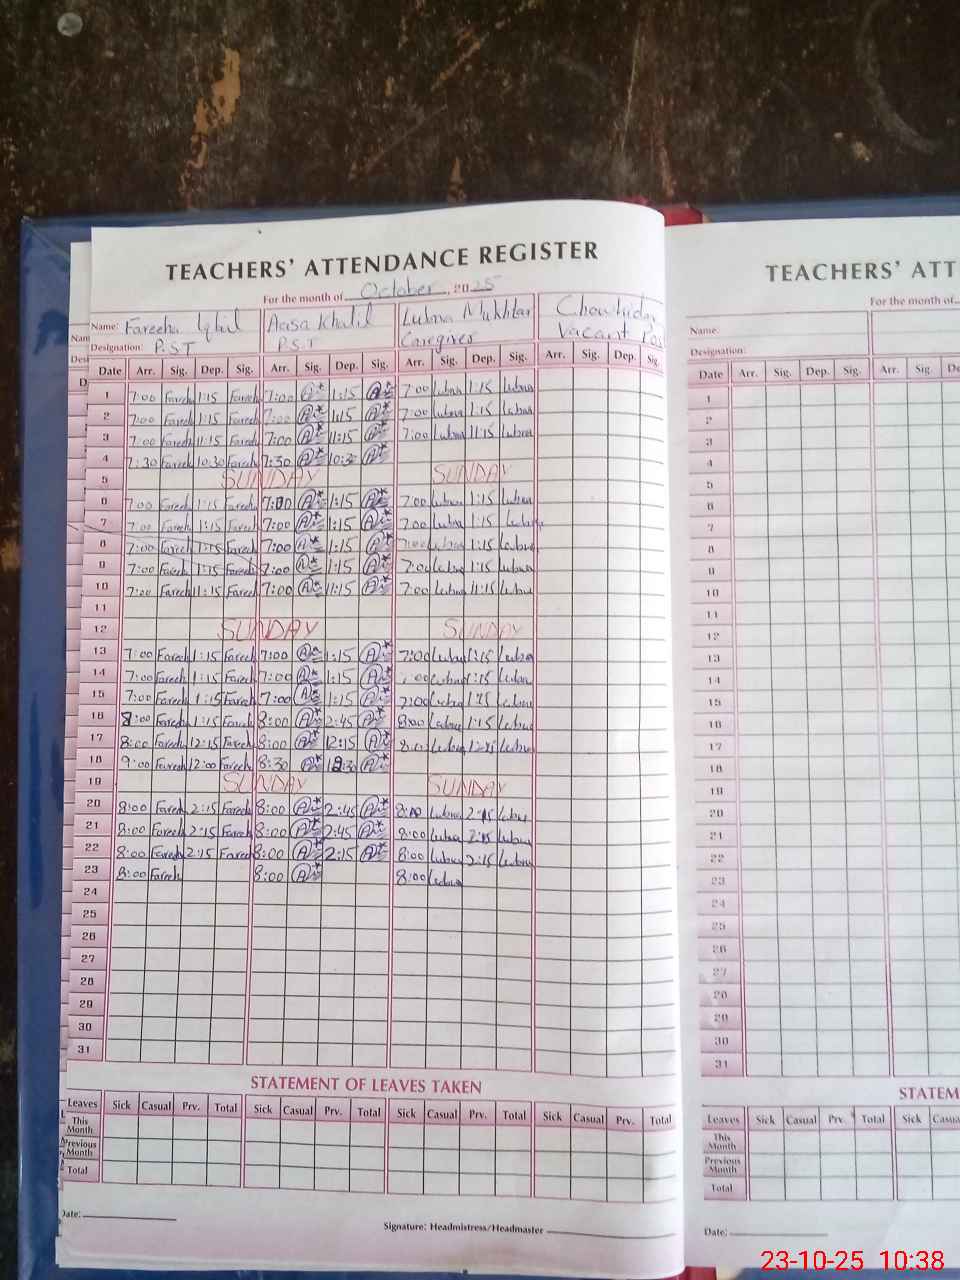 TEACHERS' ATTENDANCE REGISTER
For the month of October, 2025
Name: Fareeha Iqbal Aasa Khalil Lubna Mukhtar Chowkidar
Designation: P.ST P.S.T Caregiver Vacant Pos
Date Arr. Sig. Dep. Sig. Arr. Sig. Dep. Sig. Arr. Sig. Dep. Sig. Arr. Sig. Dep. Sig.
1 7:00 Fareeh 1:15 Fareeh 7:00 1:15 7:00 Lubna 1:15 Lubna
2 7:00 Fareeh 1:15 Fareeh 7:00 1:15 7:00 Lubna 1:15 Lubna
3 7:00 Fareeh 11:15 Fareeh 7:00 11:15 7:00 Lubna 11:15 Lubna
4 7:30 Fareeh 10:30 Fareeh 7:30 10:30
5 SUNDAY SUNDAY
6 7:00 Fareeh 1:15 Fareeh 7:00 1:15 7:00 Lubna 1:15 Lubna
7 7:00 Fareeh 1:15 Fareeh 7:00 1:15 7:00 Lubna 1:15 Lubna
8 7:00 Fareeh 1:15 Fareeh 7:00 1:15 7:00 Lubna 1:15 Lubna
9 7:00 Fareeh 1:15 Fareeh 7:00 1:15 7:00 Lubna 1:15 Lubna
10 7:00 Fareeh 11:15 Fareeh 7:00 11:15 7:00 Lubna 11:15 Lubna
11
12 SUNDAY SUNDAY
13 7:00 Fareeh 1:15 Fareeh 7:00 1:15 7:00 Lubna 1:15 Lubna
14 7:00 Fareeh 1:15 Fareeh 7:00 1:15 Lubna 1:15 Lubna
15 7:00 Fareeh 1:15 Fareeh 7:00 1:15 7:00 Lubna 1:15 Lubna
16 8:00 Fareeh 1:15 Fareeh 8:00 2:45 8:00 Lubna 1:15 Lubna
17 8:00 Fareeh 12:15 Fareeh 8:00 12:15 8:00 Lubna 12:15 Lubna
18 9:00 Fareeh 12:00 Fareeh 8:30
19 SUNDAY SUNDAY
20 8:00 Fareeh 2:15 Fareeh 8:00 2:45 8:00 Lubna 2:15 Lubna
21 8:00 Fareeh 2:15 Fareeh 8:00 2:45 8:00 Lubna 2:15 Lubna
22 8:00 Fareeh 2:15 Fareeh 8:00 2:15 8:00 Lubna 2:15 Lubna
23 8:00 Fareeh 8:00 8:00 Lubna
24
25
26
27
28
29
30
31
STATEMENT OF LEAVES TAKEN
Leaves Sick Casual Prv. Total Sick Casual Prv. Total Sick Casual Prv. Total Sick Casual Prv. Total
This Month
Previous Month
Total
Date:
Signature: Headmistress/Headmaster
TEACHERS' ATT
For the month of
Name:
Designation:
Date Arr. Sig. Dep. Sig. Arr. Sig. De
1
2
3
4
5
6
7
8
9
10
11
12
13
14
15
16
17
18
19
20
21
22
23
24
25
26
27
28
29
30
31
STATEM
Leaves Sick Casual Prv. Total Sick Casua
This Month
Previous Month
Total
Date:
23-10-25 10:38